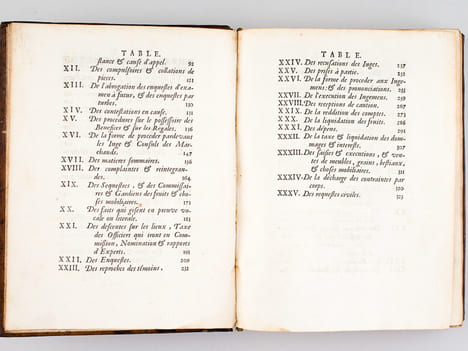 TABLE.
stance & cause d'appel. 92
XII. Des compulsoires & collations de
pieces.
XIII. De l'abrogation des enquestes d'exa-
men à futur, & des enquestes par
turbes. 110
XIV. Des contestations en cause. 111
XV. Des procedures sur le possessoire des
Benefices & sur les Regales, 116
XVI. De la forme de proceder pardevant
les Juge & Consuls des Mar-
chands. 147
XVII. Des matieres sommaires, 156
XVIII. Des complaintes & reintegran-
des. 164
XIX. Des Sequestres, & des Commissai-
res & Gardiens des fruits & cho-
ses mobiliaires. 171
XX. Des faits qui gisent en preuve vo-
cale ou literale. 183
XXI. Des descentes sur les lieux, Taxe
des Officiers qui iront en Com-
mission, Nomination & rapports
d'Experts. 191
XXII. Des Enquestes. 209
XXIII. Des reproches des témoins. 232
TABLE.
XXIV. Des recusations des Juges. 237
XXV. Des prises à partie. 252
XXVI. De la forme de proceder aux Juge-
mens: & des prononciations. 255
XXVII. De l'execution des Jugemens. 259
XXVIII. Des receptions de caution. 282
XXIX. De la reddition des comptes. 283
XXX. De la liquidation des fruits. 296
XXXI. Des dépens.
XXXII. De la taxe & liquidation des dom-
mages & interests, 307
XXXIII. Des saisies & executions, & ven-
tes de meubles, grains, bestiaux,
& choses mobiliaires. 309
XXXIV. De la décharge des contraintes par
corps. 313
XXXV. Des requestes civiles. 323